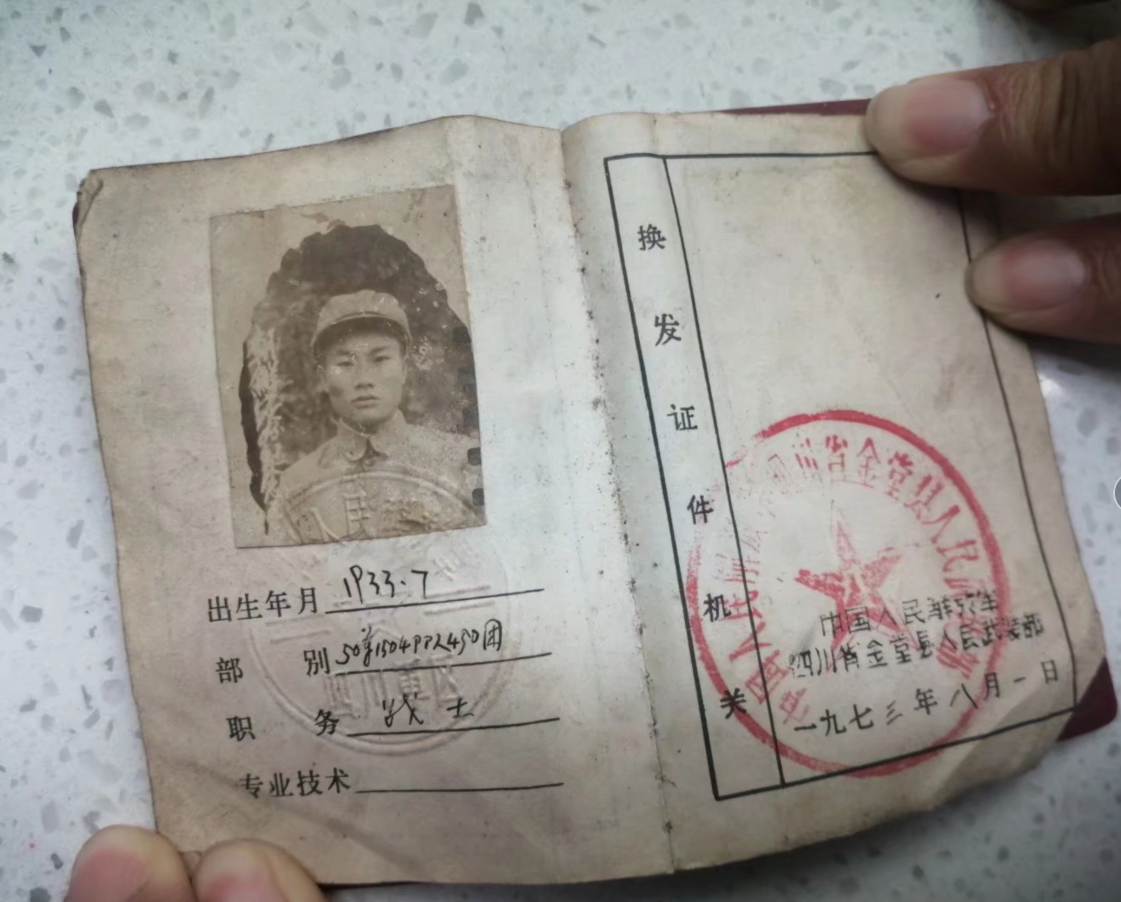 出生年月 1933.7
部别 50军150师450团
职务 战士
专业技术
换发证件机关
中国人民解放军四川省金堂县人民武装部
中国人民解放军
四川省金堂县人民武装部
一九七三年八月一日